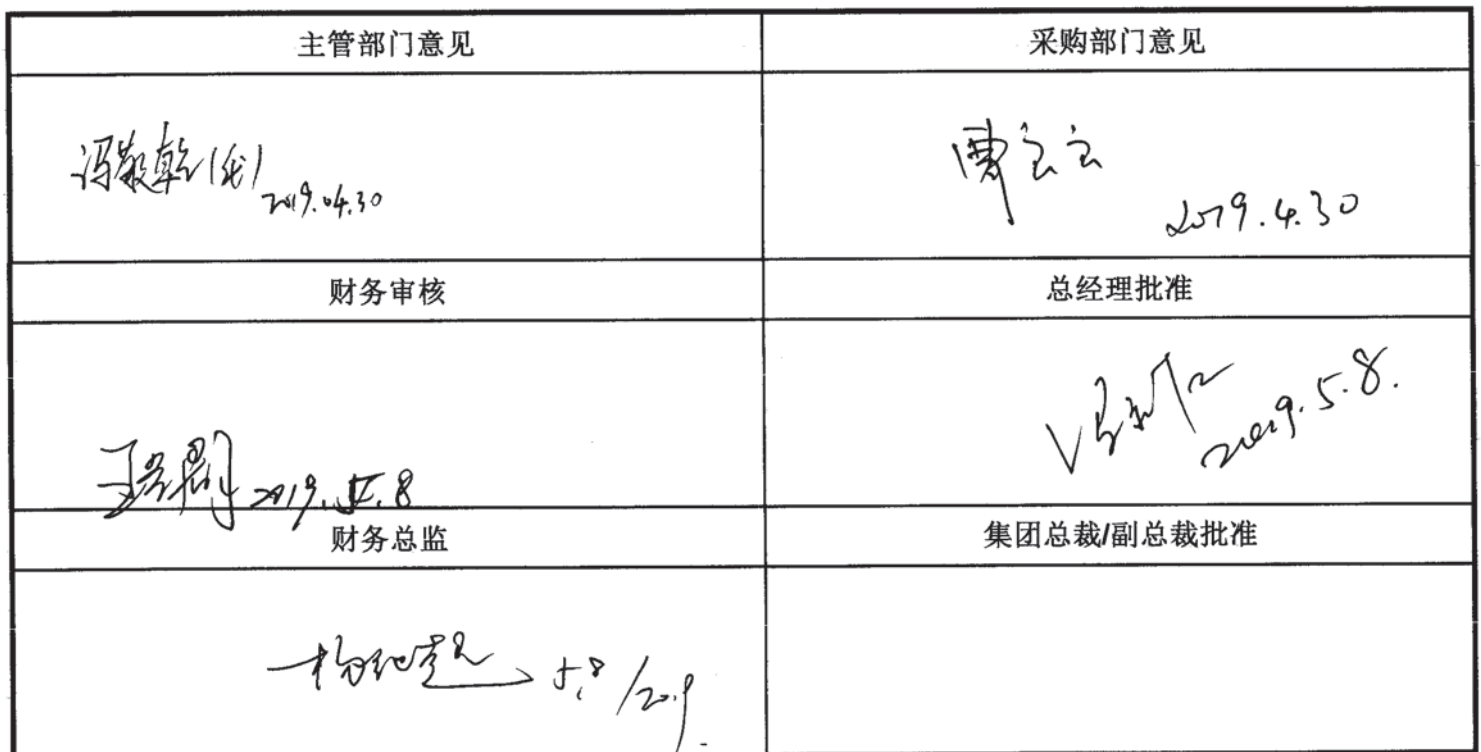 主管部门意见
采购部门意见
冯敬乾(代)
2019.04.30
曹云云
2019.4.30
财务审核
总经理批准
2019.5.8
2019.5.8.
财务总监
集团总裁/副总裁批准
5.8/2019.